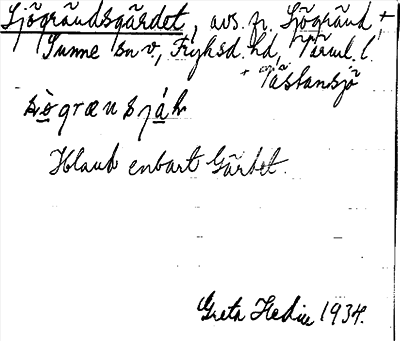 Sjögrändsgärdet, avs. fr. Sjögränd +
Sunne sn v., Fryksd. hd, Värml. l.
+ på Västansjö
Ibland enbart Gärdet.
Greta Hedin 1934.